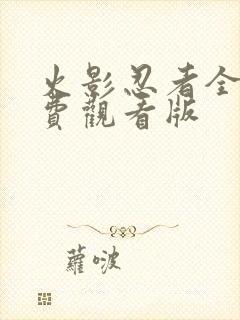 火影忍者全
費觀看版
蘿啵